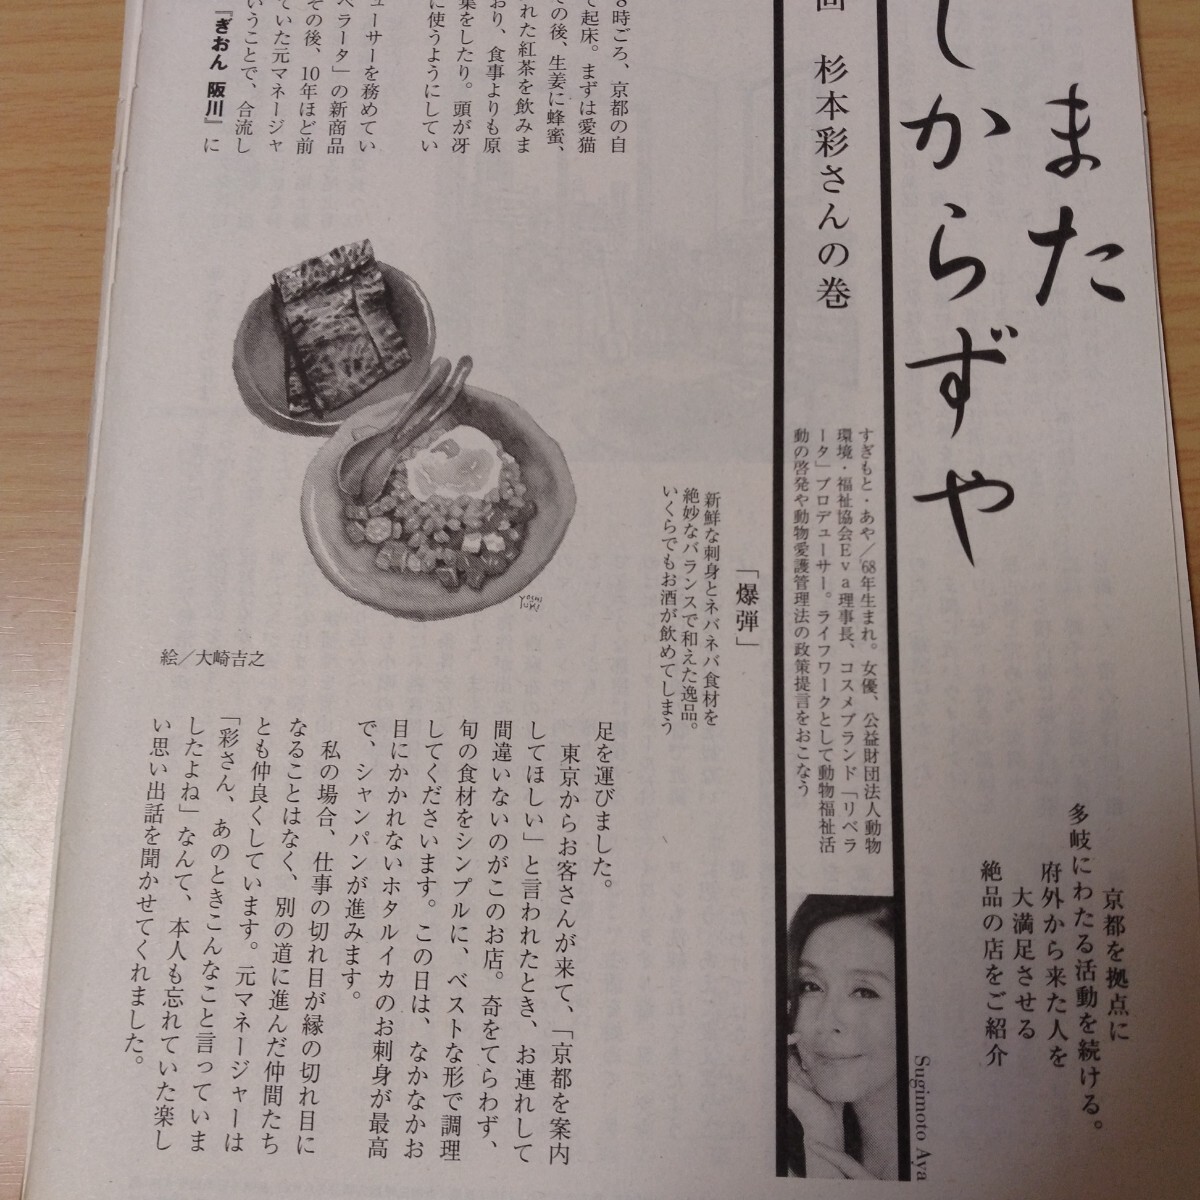 また
しからずや
京都を拠点に
多岐にわたる活動を続ける。
府外から来た人を
大満足させる
絶品の店をご紹介
回　杉本彩さんの巻
すぎもと・あや／'68年生まれ。女優、公益財団法人動物
環境・福祉協会Eva理事長、コスメブランド「リベラ
ータ」プロデューサー。ライフワークとして動物福祉活
動の啓発や動物愛護管理法の政策提言をおこなう
Sugimoto Aya
「爆弾」
新鮮な刺身とネバネバ食材を
絶妙なバランスで和えた逸品。
いくらでもお酒が飲めてしまう
8時ごろ、京都の自
て起床。まずは愛猫
の後、生姜に蜂蜜、
れた紅茶を飲みま
おり、食事よりも原
集をしたり。頭が冴
に使うようにしてい
ューサーを務めてい
ベラータ」の新商品
その後、10年ほど前
ていた元マネージャ
いうことで、合流し
『ぎおん 阪川』に
YOSHI
YUKI
絵／大崎吉之
足を運びました。
東京からお客さんが来て、「京都を案内
してほしい」と言われたとき、お連れして
間違いないのがこのお店。奇をてらわず、
旬の食材をシンプルに、ベストな形で調理
してくださいます。この日は、なかなかお
目にかかれないホタルイカのお刺身が最高
で、シャンパンが進みます。
私の場合、仕事の切れ目が縁の切れ目に
なることはなく、別の道に進んだ仲間たち
とも仲良くしています。元マネージャーは
「彩さん、あのときこんなこと言っていま
したよね」なんて、本人も忘れていた楽し
い思い出話を聞かせてくれました。